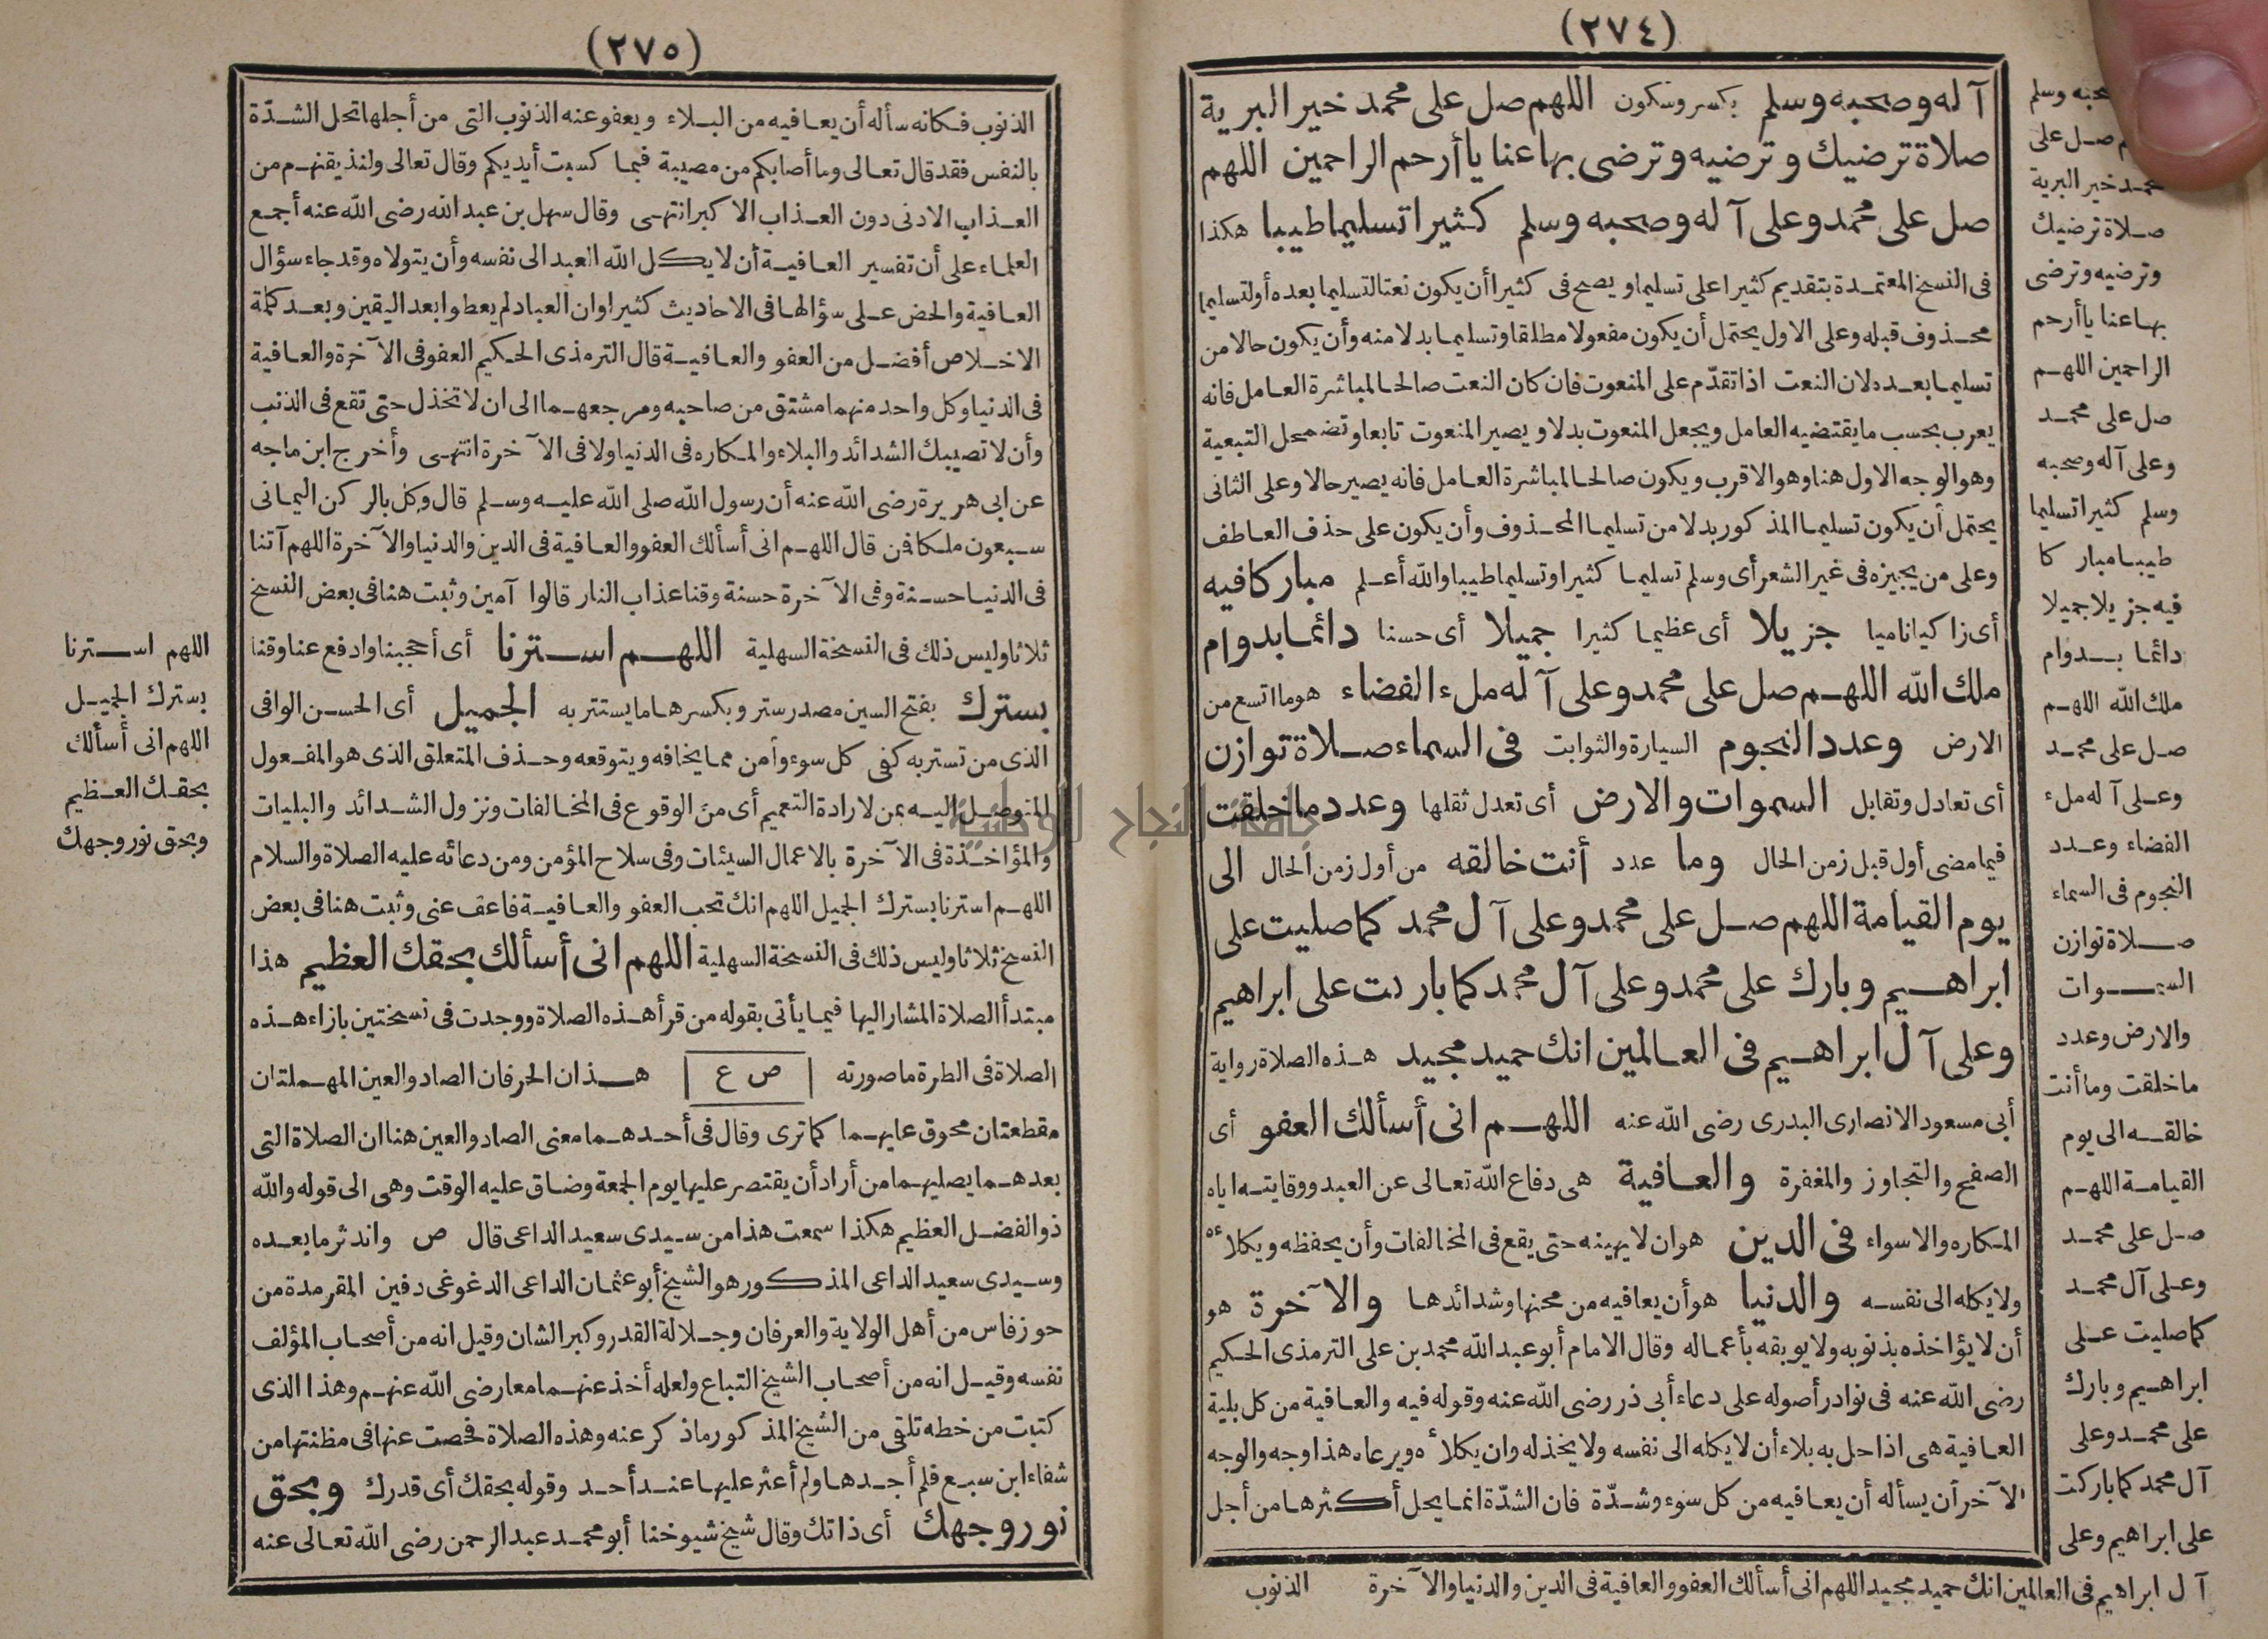 (٢٧٤)
آله وصحبه وسلم بكسر وسكون اللهم صل على محمد خير البرية
صلاة ترضيك وترضيه وترضى بها عنا يا أرحم الراحمين اللهم
صل على محمد وعلى آله وصحبه وسلم كثيرا تسليما طيبا هكذا
فى النسخ المعتمدة بتقديم كثيرا على تسليما ويصح فى كثيرا أن يكون نعتا لتسليما بعده أو لتسليما
محذوف قبله وعلى الاول يحتمل أن يكون مفعولا مطلقا وتسليما بدلا منه وأن يكون حالا من
تسليما بعده لان النعت اذا تقدّم على المنعوت فان كان النعت صالحا لمباشرة العامل فانه
يعرب بحسب ما يقتضيه العامل ويجعل المنعوت بدلا ويصير المنعوت تابعا وتضمحل التبعية
وهو الوجه الاول هنا وهو الاقرب ويكون صالحا لمباشرة العامل فانه يصير حالا وعلى الثانى
يحتمل أن يكون تسليما المذكور بدلا من تسليما المحذوف وأن يكون على حذف العاطف
وعلى من يجيزه فى غير الشعر أى وسلم تسليما كثيرا وتسليما طيبا والله أعلم مباركا فيه
أى زا كيا ناميا جزيلا أى عظيما كثيرا جميلا أى حسنا دائما بدوام
ملك الله اللهم صل على محمد وعلى آله ملء الفضاء هو ما اتسع من
الارض وعدد النجوم السيارة والثوابت فى السماء صلاة توازن
أى تعادل وتقابل السموات والارض أى تعدل ثقلها وعدد ما خلقت
فيما مضى أول قبل زمن الحال وما عدد أنت خالقه من أول زمن الحال الى
يوم القيامة اللهم صل على محمد وعلى آل محمد كما صليت على
ابراهيم وبارك على محمد وعلى آل محمد كما باركت على ابراهيم
وعلى آل ابراهيم فى العالمين انك حميد مجيد هذه الصلاة رواية
أبى مسعود الانصارى البدرى رضى الله عنه اللهم انى أسألك العفو أى
الصفح والتجاوز والمغفرة والعافية هى دفاع الله تعالى عن العبد ووقايته اياه
المكاره والاسواء فى الدين هو ان لا يهينه حتى يقع فى المخالفات وأن يحفظه ويكلأه
ولا يكله الى نفسه والدنيا هو أن يعافيه من محنها وشدائدها والآخرة هو
أن لا يؤاخذه بذنوبه ولا يوبقه بأعماله وقال الامام أبو عبد الله محمد بن على الترمذى الحكيم
رضى الله عنه فى نوادر أصوله على دعاء أبى ذر رضى الله عنه وقوله فيه والعافية من كل بلية
العافية هى اذا حل به بلاء أن لا يكله الى نفسه ولا يخذله وان يكلأه ويرعاه هذا وجه والوجه
الآخر أن يسأله أن يعافيه من كل سوء وشدّة فان الشدّة انما يحل أكثرها من أجل
صحبه وسلم
صل على
محمد خير البرية
صلاة ترضيك
وترضيه وترضى
بها عنا يا أرحم
الراحمين اللهم
صل على محمد
وعلى آله وصحبه
وسلم كثيرا تسليما
طيبا مباركا
فيه جزيلا جميلا
دائما بدوام
ملك الله اللهم
صل على محمد
وعلى آله ملء
الفضاء وعدد
النجوم فى السماء
صلاة توازن
السموات
والارض وعدد
ما خلقت وما أنت
خالقه الى يوم
القيامة اللهم
صل على محمد
وعلى آل محمد
كما صليت على
ابراهيم وبارك
على محمد وعلى
آل محمد كما باركت
على ابراهيم وعلى
آل ابراهيم فى العالمين انك حميد مجيد اللهم انى أسألك العفو والعافية فى الدين والدنيا والآخرة
الذنوب
(٢٧٥)
الذنوب فكانه سأله أن يعافيه من البلاء ويعفو عنه الذنوب التى من أجلها تحل الشدّة
بالنفس فقد قال تعالى وما أصابكم من مصيبة فبما كسبت أيديكم وقال تعالى ولنذيقنهم من
العذاب الادنى دون العذاب الاكبر انتهى وقال سهل بن عبد الله رضى الله عنه أجمع
العلماء على أن تفسير العافية أن لا يكل الله العبد الى نفسه وأن يتولاه وقد جاء سؤال
العافية والحض على سؤالها فى الاحاديث كثيرا وان العباد لم يعطوا بعد اليقين وبعد كلمة
الاخلاص أفضل من العفو والعافية قال الترمذى الحكيم العفو فى الآخرة والعافية
فى الدنيا وكل واحد منهما مشتق من صاحبه ومرجعهما الى ان لا تخذل حتى تقع فى الذنب
وأن لا تصيبك الشدائد والبلاء والمكاره فى الدنيا ولا فى الآخرة انتهى وأخرج ابن ماجه
عن ابى هريرة رضى الله عنه أن رسول الله صلى الله عليه وسلم قال وكل بالركن اليمانى
سبعون ملكا فمن قال اللهم انى أسألك العفو والعافية فى الدين والدنيا والآخرة اللهم آتنا
فى الدنيا حسنة وفى الآخرة حسنة وقنا عذاب النار قالوا آمين وثبت هنا فى بعض النسخ
ثلاثا وليس ذلك فى النسخة السهلية اللهم استرنا أى أحجبنا وادفع عنا وقنا
بسترك بفتح السين مصدر ستر وبكسرها ما يستتر به الجميل أى الحسن الوافى
الذى من تستر به كفى كل سوء وأمن مما يخافه ويتوقعه وحذف المتعلق الذى هو المفعول
المتوصل اليه بمن لارادة التعميم أى من الوقوع فى المخالفات ونزول الشدائد والبليات
والمؤاخذة فى الآخرة بالاعمال السيئات وفى سلاح المؤمن ومن دعائه عليه الصلاة والسلام
اللهم استرنا بسترك الجميل اللهم انك تحب العفو والعافية فاعف عنى وثبت هنا فى بعض
النسخ ثلاثا وليس ذلك فى النسخة السهلية اللهم انى أسألك بحقك العظيم هذا
مبتدأ الصلاة المشار اليها فيما يأتى بقوله من قرأ هذه الصلاة ووجدت فى نسختين بازاء هذه
الصلاة فى الطرة ما صورته | ص ع | هذان الحرفان الصاد والعين المهملتان
مقطعتان محوق عليهما كما ترى وقال فى أحدهما معنى الصاد والعين هنا ان الصلاة التى
بعدهما يصليهما من أراد أن يقتصر عليها يوم الجمعة وضاق عليه الوقت وهى الى قوله والله
ذو الفضل العظيم هكذا سمعت هذا من سيدى سعيد الداعى قال ص واندثر ما بعده
وسيدى سعيد الداعى المذكور هو الشيخ أبو عثمان الداعى الدغوغى دفين المقرمدة من
حوز فاس من أهل الولاية والعرفان وجلالة القدر وكبر الشان وقيل انه من أصحاب المؤلف
نفسه وقيل انه من أصحاب الشيخ التباع ولعله أخذ عنهما معا رضى الله عنهم وهذا الذى
كتبت من خطه تلقى من الشيخ المذكور ما ذكر عنه وهذه الصلاة فحصت عنها فى مظنتها من
شفاء ابن سبع فلم أجدها ولم أعثر عليها عند أحد وقوله بحقك أى قدرك وبحق
نور وجهك أى ذاتك وقال شيخ شيوخنا أبو محمد عبد الرحمن رضى الله تعالى عنه
اللهم استرنا
بسترك الجميل
اللهم انى أسألك
بحقك العظيم
وبحق نور وجهك
جامعة النجاح الوطنية